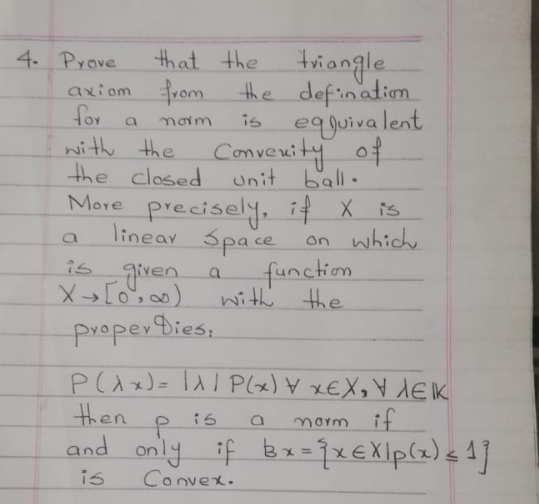 4. Prove that the triangle
axiom from the defination
for a norm is eqquivalent
with the Convexity of
the closed unit ball.
More precisely, if X is
a linear space on which
is given a function
X→[0,∞) with the
properties:
P(λx)=|λ|P(x) ∀ x∈X, ∀ λ∈𝕂
then p is a norm if
and only if Bx={x∈X|p(x)≤1}
is Convex.